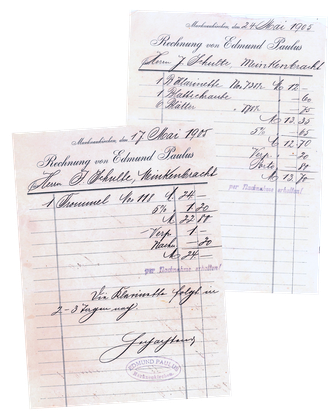 Markneukirchen, den 24 Mai 1905
Rechnung von Edmund Paulus
Herrn J. Schulte Meinkenbracht
1 B Klarinette No 7311. M 12 –
1 Blattschraube – 60
6 Blätter – 75
M 13 35
5% 65
M 12 70
Verp. – 20
Porto – 80
M 13 70
per Nachnahme erhalten!
Markneukirchen, den 17 Mai 1905
Rechnung von Edmund Paulus
Herrn J Schulte, Meinkenbracht
1 Trommel No 111. M 24 –
5% 1.20
M 22 80
Verp. 1 –
Nachn – 20
M 24 –
per Nachnahme erhalten!
Die Klarinette folgt in
2-3 Tagen nach.
EDMUND PAULUS
Markneukirchen